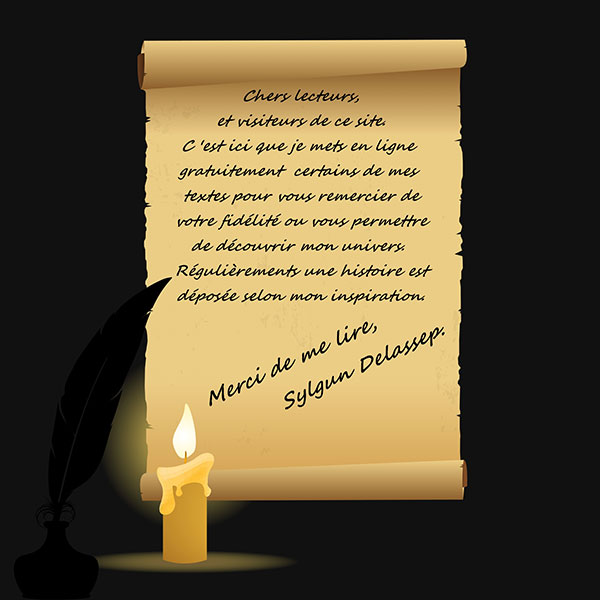 Chers lecteurs,
et visiteurs de ce site.
C 'est ici que je mets en ligne
gratuitement certains de mes
textes pour vous remercier de
votre fidélité ou vous permettre
de découvrir mon univers.
Régulièrements une histoire est
déposée selon mon inspiration.
Merci de me lire,
Sylgun Delassep.